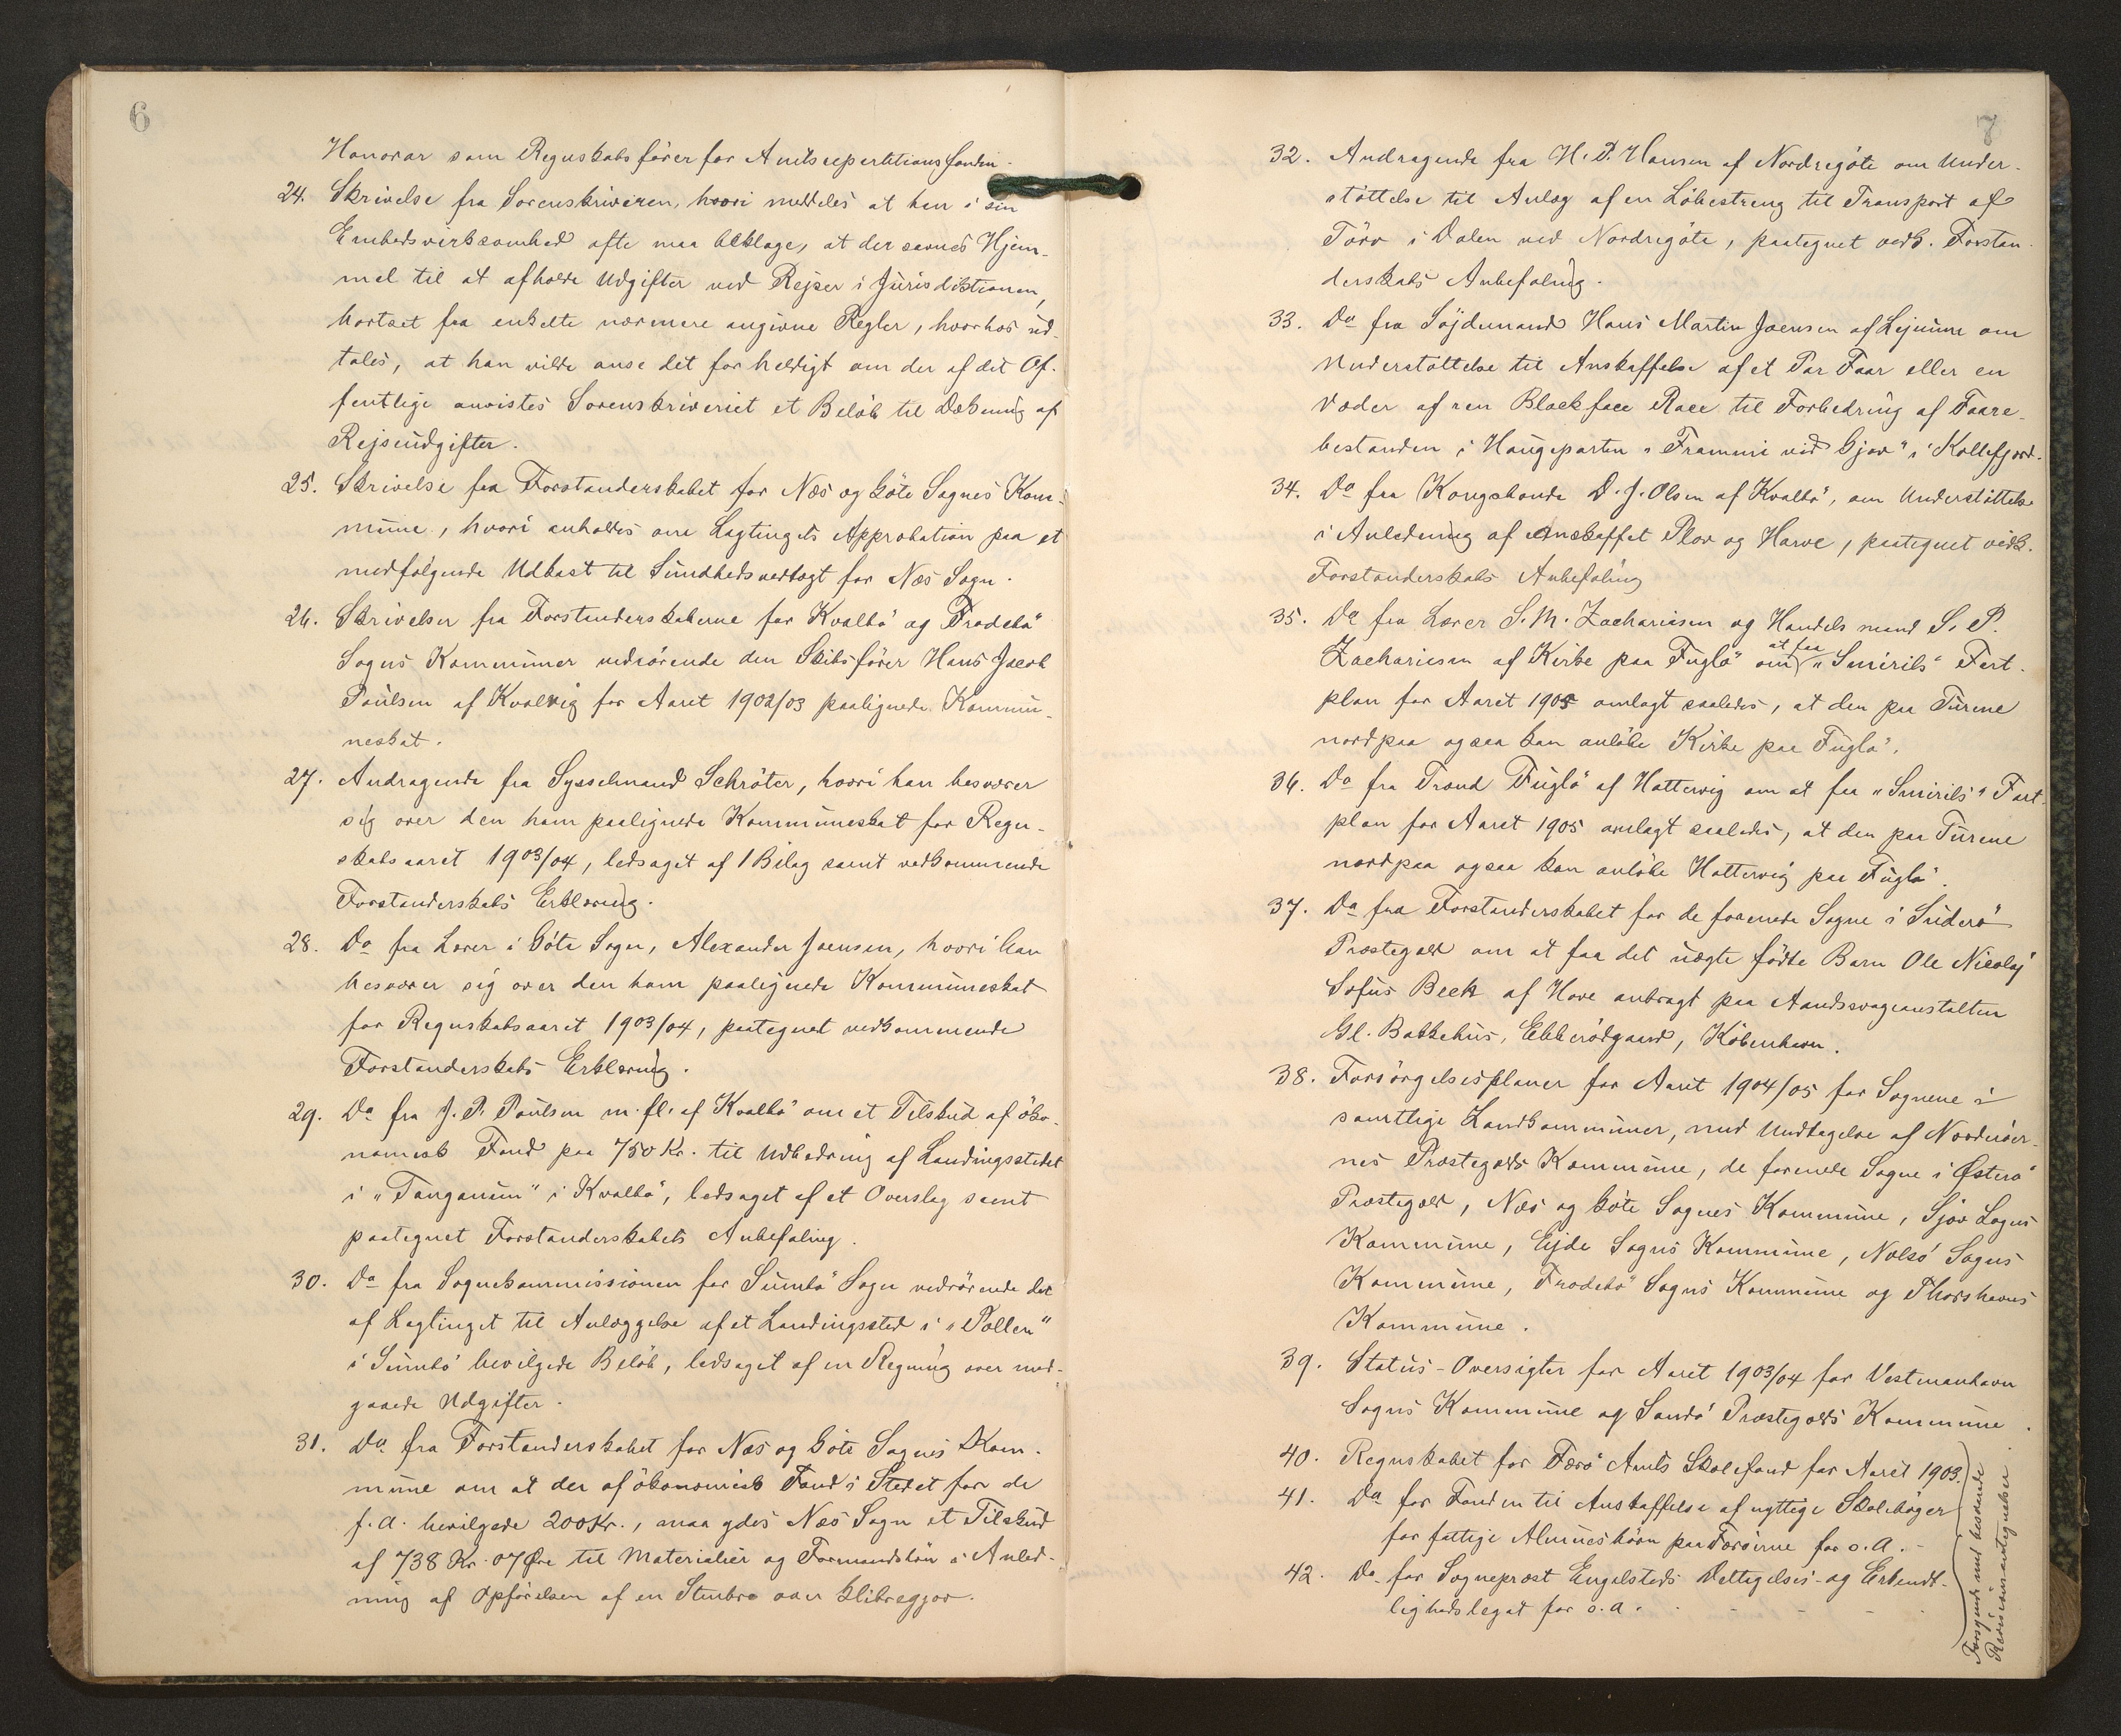 6
Honorar som Regnskabsfører for Amtsrepartitionsfonden.
24. Skrivelse fra Sorenskriveren, hvori meddeles at han i sin
Embedsvirksomhed ofte maa beklage, at der savnes Hjem-
mel til at afholde Udgifter ved Rejser i Jurisdiktionen,
bortset fra enkelte nærmere angivne Regler, hvorhos ud-
tales, at han vilde anse det for heldigt om der af det Of-
fentlige anvistes Sorenskriveriet et Beløb til Dækning af
Rejseudgifter.
25. Skrivelse fra Forstanderskabet for Næs og Göte Sognes Kom-
mune, hvori anholdes om Lagtingets Approbation paa et
medfølgende Udkast til Sundhedsvedtægt for Næs Sogn.
26. Skrivelser fra Forstanderskaberne for Kvalbö og Frodebö
Sogns Kommuner vedrörende den Skibsfører Hans Jacob
Poulsen af Kvalvig for Aaret 1902/03 paalignede Kommu-
neskat.
27. Andragende fra Sysselmand Schröter, hvori han besværer
sig over den ham paalignede Kommuneskat for Regn-
skabsaaret 1903/04, ledsaget af 1 Bilag samt vedkommende
Forstanderskabs Erklæring.
28. Do fra Lærer i Göte Sogn, Alexander Joensen, hvori han
besværer sig over den ham paalignede Kommuneskat
for Regnskabsaaret 1903/04, paategnet vedkommende
Forstanderskabs Erklæring.
29. Do fra J. P. Poulsen m. fl. af Kvalbö om et Tilskud af öko-
nomisk Fond paa 750 Kr. til Udbedring af Landingsstedet
i "Tanganum" i Kvalbö, ledsaget af et Overslag samt
paategnet Forstanderskabets Anbefaling.
30. Do fra Sognekommissionen for Sumbö Sogn vedrörende det
af Lagtinget til Anlæggelse af et Landingssted i "Pollen"
i Sumbö bevilgede Beløb, ledsaget af en Regning over med-
gaaede Udgifter.
31. Do fra Forstanderskabet for Næs og Göte Sognes Kom-
mune om at der af ökonomisk Fond i Stedet for de
f. A. bevilgede 200 Kr., maa ydes Næs Sogn et Tilskud
af 738 Kr. 07 Øre til Materialier og Formandslön i Anled-
ning af Opførelsen af en Stenbro over Glibregjov.
7
32. Andragende fra H. P. Hansen af Nordregöte om Under-
støttelse til Anlæg af en Löbestreng til Transport af
Törv i Dalen ved Nordregöte, paategnet vedk. Forstan-
derskabs Anbefaling.
33. Do fra Söjdemand Hans Martin Joensen af Lejnum om
Understøttelse til Anskaffelse af et Par Faar eller en
Væder af ren Blackface Race til Forbedring af Faare-
bestanden i Haugeparten "Frammi vid Gjov" i Kollefjord.
34. Do fra Kongsbonde D. J. Olsen af Kvalbö, om Understøttelse
i Anledning af anskaffet Plov og Harve, paategnet vedk.
Forstanderskabs Anbefaling
35. Do fra Lærer S. M. Zachariasen og Handelsmand S. P.
Zachariasen af Kirke paa Fuglö om at faa "Smirils" Fart-
plan for Aaret 1905 omlagt saaledes, at den paa Turene
nordpaa ogsaa kan anlöbe Kirke paa Fuglö.
36. Do fra Trond Fuglö af Hattervig om at faa "Smirils" Fart-
plan for Aaret 1905 omlagt saaledes, at den paa Turene
nordpaa ogsaa kan anlöbe Hattervig paa Fuglö.
37. Do fra Forstanderskabet for de forenede Sogne i Suderö
Præstegæld om at faa det uægte födte Barn Ole Nicolaj
Sofus Beck af Hove anbragt paa Aandssvageanstalten
Gl. Bakkehus, Ebberödgaard, Köbenhavn.
38. Forsörgelsesplaner for Aaret 1904/05 for Sognene i
samtlige Landkommuner, med Undtagelse af Norderöer-
nes Præstegælds Kommune, de forenede Sogne i Østerö
Præstegæld, Næs og Göte Sognes Kommune, Sjov Sogns
Kommune, Ejde Sogns Kommune, Nolsö Sogns
Kommune, Frodebö Sogns Kommune og Thorshavns
Kommune.
39. Status-Oversigter for Aaret 1903/04 for Vestmanhavn
Sogns Kommune og Sandö Præstegælds Kommune.
40. Regnskabet for Færö Amts Skolefond for Aaret 1903.
41. Do for Fonden til Anskaffelse af nyttige Skolebøger
for fattige Almuesbörn paa Færöerne for s. A. -
42. Do for Sognepræst Engelsteds Deltagelses- og Erkendt-
lighedslegat for s. A. - - - -
Forsynede med besvarede
Revisionsantegnelser.